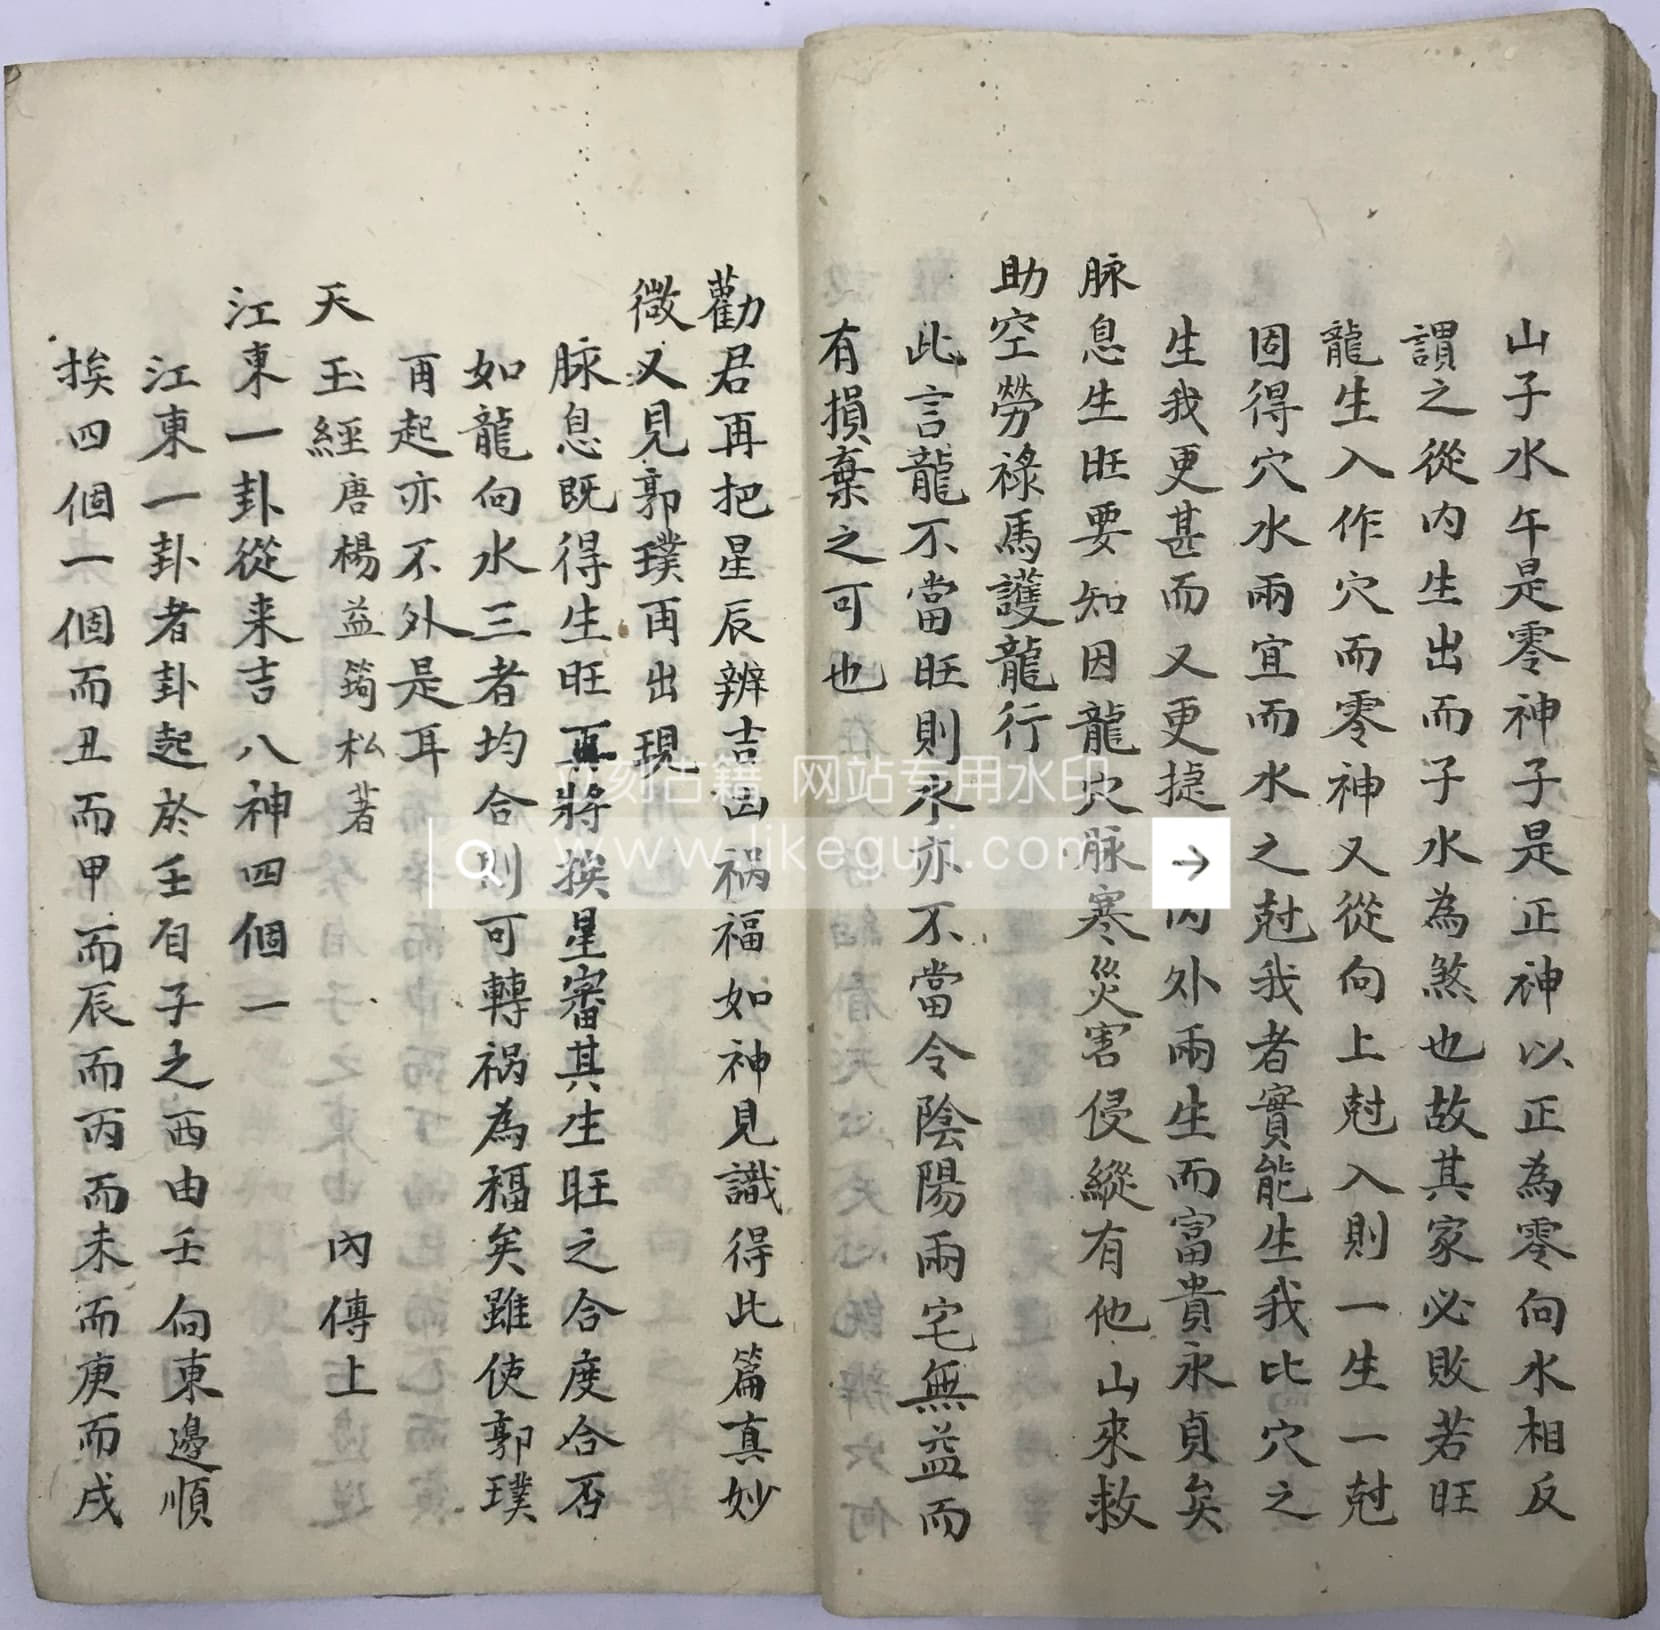 山子水午是零神子是正神以正為零向水相反
謂之從內生出而子水為煞也故其家必敗若旺
龍生入作穴而零神又從向上尅入則一生一尅
固得穴水兩宜而水之尅我者實能生我比穴之
生我更甚而又更捷內外兩生而富貴永貞矣
脉息生旺要知因龍穴脉寒災害侵縱有他山來救
助空勞祿馬護龍行
此言龍不當旺則水亦不當令陰陽兩宅無益而
有損棄之可也
勸君再把星辰辨吉凶禍福如神見識得此篇真妙
微又見郭璞再出現
脉息既得生旺再將挨星審其生旺之合度合否
如龍向水三者均合則可轉禍為福矣雖使郭璞
再起亦不外是耳
天玉經唐楊益筠松著 內傳上
江東一卦從来吉八神四個一
江東一卦者卦起於壬自子之西由壬向東邊順
挨四個一個而丑而甲而辰而丙而未而庚而戌
立刻古籍 网站专用水印
www.likeguji.com